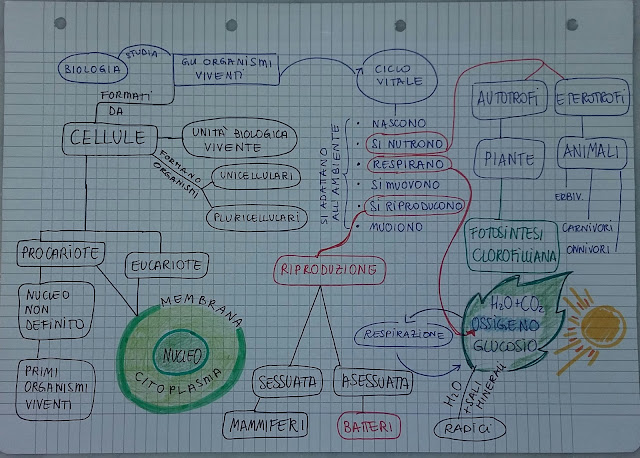 BIOLOGIA
STUDIA
GLI ORGANISMI
VIVENTI
CICLO
VITALE
FORMATI
DA
CELLULE
UNITÀ BIOLOGICA
VIVENTE
FORMANO
ORGANISMI
UNICELLULARI
PLURICELLULARI
SI ADATTANO
ALL'AMBIENTE
• NASCONO
• SI NUTRONO
• RESPIRANO
• SI MUOVONO
• SI RIPRODUCONO
• MUOIONO
AUTOTROFI
ETEROTROFI
PIANTE
ANIMALI
ERBIV.
CARNIVORI
ONNIVORI
FOTOSINTESI
CLOROFILLIANA
PROCARIOTE
EUCARIOTE
NUCLEO
NON
DEFINITO
PRIMI
ORGANISMI
VIVENTI
MEMBRANA
NUCLEO
CITOPLASMA
RIPRODUZIONE
SESSUATA
ASESSUATA
MAMMIFERI
BATTERI
RESPIRAZIONE
H2O+CO2
OSSIGENO
GLUCOSIO
H2O
+SALI
MINERALI
RADICI